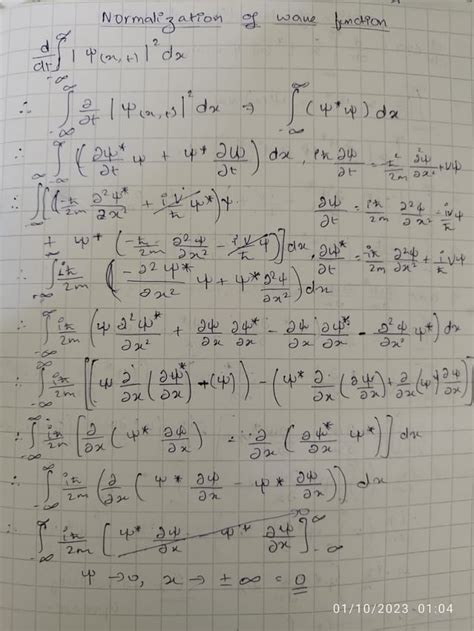 Normalization of wave function
d/dt ∫_{-∞}^{∞} |Ψ(x,t)|² dx
∴ ∫_{-∞}^{∞} ∂/∂t |Ψ(x,t)|² dx ⇒ ∫_{-∞}^{∞} (Ψ*Ψ) dx
∴ ∫_{-∞}^{∞} (∂Ψ*/∂t Ψ + Ψ* ∂Ψ/∂t) dx, iħ ∂Ψ/∂t = -ħ²/2m ∂²Ψ/∂x² + VΨ
∫[(-ħ/2m ∂²Ψ*/∂x² + iV/ħ Ψ*)Ψ ∂Ψ/∂t = iħ/2m ∂²Ψ/∂x² - iV/ħ Ψ
+ Ψ* (-ħ/2m ∂²Ψ/∂x² - iV/ħ Ψ)] dx, ∂Ψ*/∂t = iħ/2m ∂²Ψ/∂x² + iVΨ
∴ ∫_{-∞}^{∞} iħ/2m (-∂²Ψ*/∂x² Ψ + Ψ* ∂²Ψ/∂x²) dx
∴ ∫_{-∞}^{∞} iħ/2m (Ψ ∂²Ψ*/∂x² + ∂Ψ/∂x ∂Ψ*/∂x - ∂Ψ/∂x ∂Ψ*/∂x - ∂²Ψ/∂x² Ψ*) dx
∴ ∫_{-∞}^{∞} iħ/2m [(Ψ ∂/∂x (∂Ψ*/∂x) + (Ψ)) - (Ψ* ∂/∂x (∂Ψ/∂x) + ∂/∂x (Ψ*) ∂Ψ/∂x)]
∴ ∫_{-∞}^{∞} iħ/2m [∂/∂x (Ψ* ∂Ψ/∂x) - ∂/∂x (∂Ψ*/∂x Ψ*)] dx
∴ ∫_{-∞}^{∞} iħ/2m (∂/∂x (Ψ* ∂Ψ/∂x - Ψ* ∂Ψ/∂x)) dx
∴ ∫_{-∞}^{∞} iħ/2m [Ψ* ∂Ψ/∂x Ψ* ∂Ψ/∂x]_{-∞}^{∞}
Ψ → 0, x → ±∞ = 0
01/10/2023 01:04